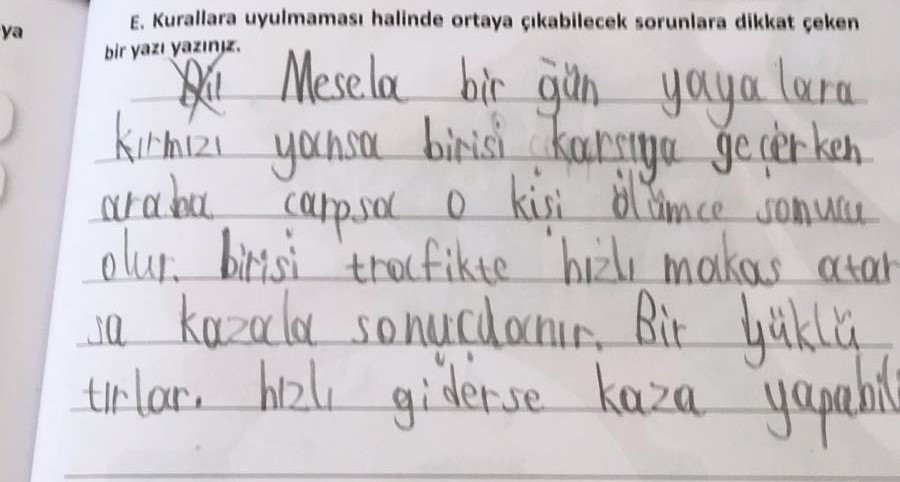 ya
E. Kurallara uyulmaması halinde ortaya çıkabilecek sorunlara dikkat çeken
bir yazı yazınız.
Mesela bir ğün yayalara
kırmızı yansa birisi karsıya geçerken
araba çarpsa o kişi ölümce sonucu
olur. birisi trafikte hızlı makas atar
sa kazala sonucdanır. Bir yüklü
tırlar. hızlı giderse kaza yapabili